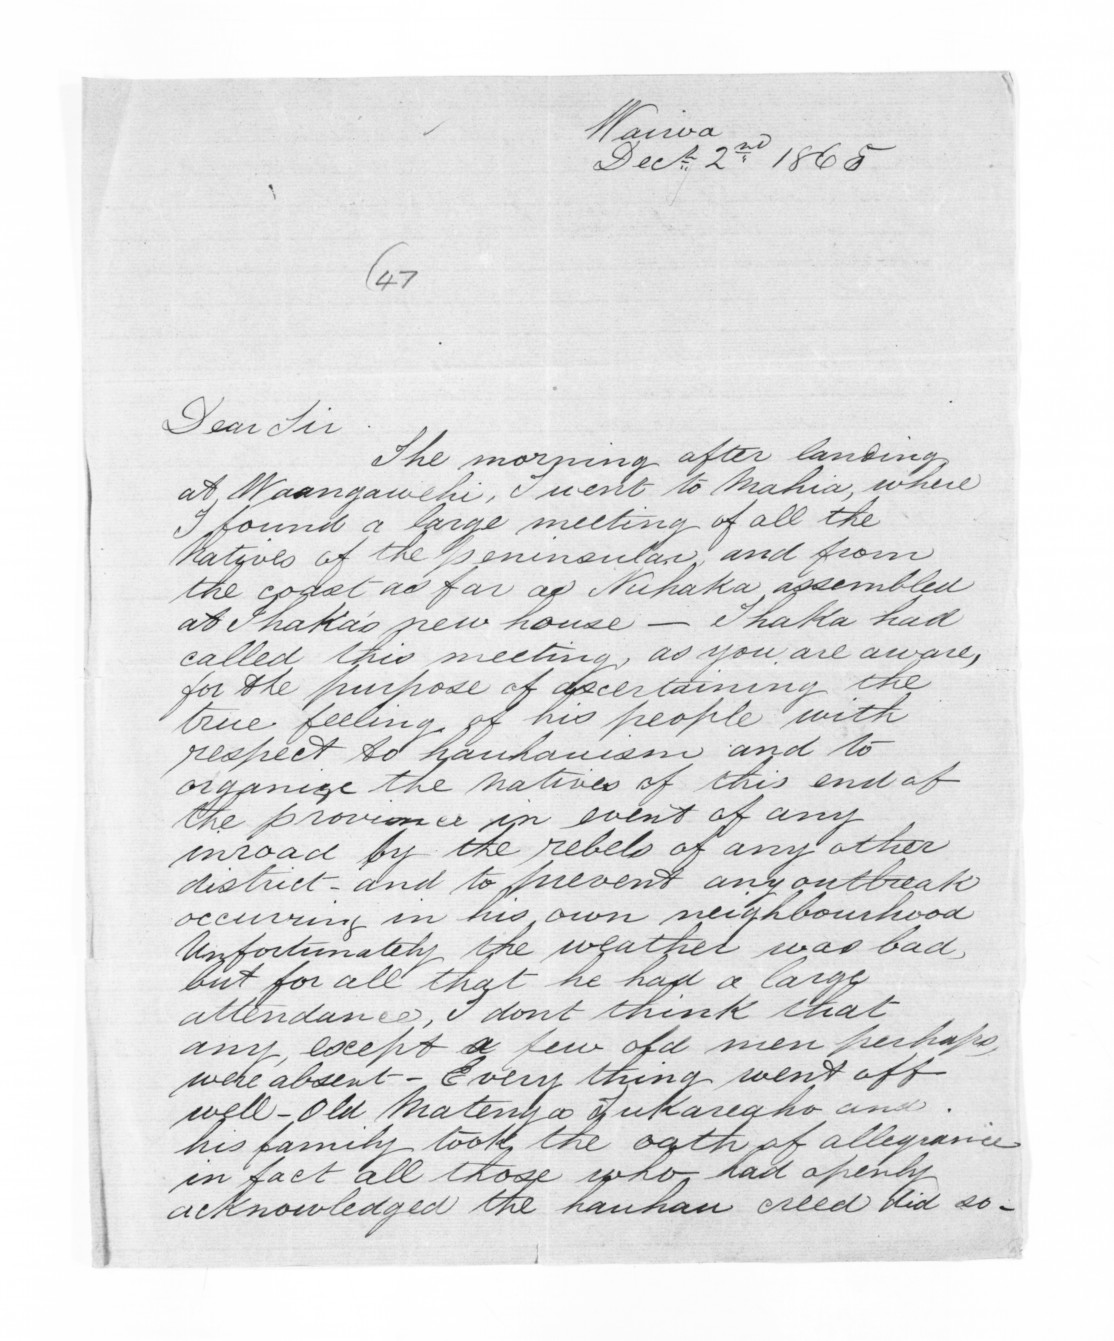 Wairoa
Decr. 2nd 1865
(47
Dear Sir.
The morning after landing
at Waangawehi, I went to Mahia, where
I found a large meeting of all the
Natives of the peninsular, and from
the coast as far as Nuhaka assembled
at Ihaka's new house — Ihaka had
called this meeting, as you are aware,
for the purpose of ascertaining the
true feeling of his people with
respect to hauhauism and to
organize the natives of this end of
the province in event of any
inroad by the rebels of any other
district - and to prevent any outbreak
occurring in his own neighbourhood
Unfortunately the weather was bad,
but for all that he had a large
attendance, I dont think that
any, except a few old men perhaps,
were absent - Every thing went off
well - Old Matenga Tukareaho and
his family took the oath of allegiance
in fact all those who had openly
acknowledged the hauhau creed did so -